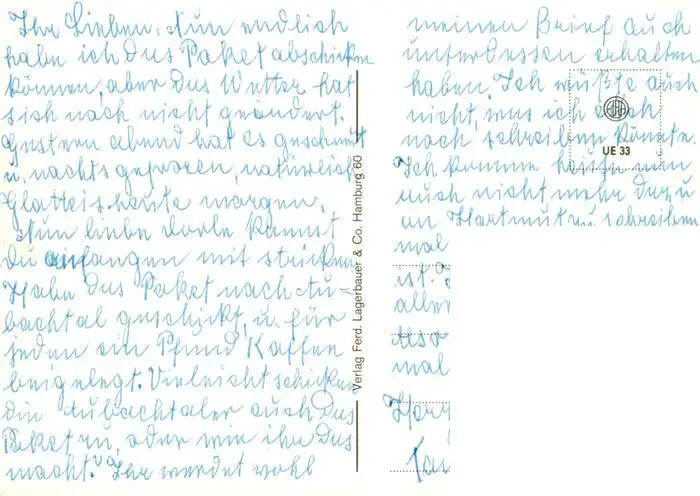 Ihr Lieben. Nun endlich
habe ich das Paket abschicken
können, aber das Wetter hat
sich noch nicht geändert.
Gestern abend hat es geschneit
u. nachts gefroren, natürlich
Glatteis heute morgen.
Nun liebe Dorle kannst
du anfangen mit stricken
Habe das Paket nach Au-
bachtal geschickt, u. für
jeden ein Pfund Kaffee
beigelegt. Vielleicht schicken
die Aubachtaler auch das
Paket zu, oder wie ihr das
macht. Ihr werdet wohl
Verlag Ferd. Lagerbauer & Co. Hamburg 60
meinen Brief auch
unterdessen erhalten
haben. Ich wüßte auch
nicht, was ich euch
noch schreiben könnte.
UE 33
Ich komme heute nun
auch nicht mehr dazu
an Hartmut zu schreiben
mal
ist.
aller
Also
mal